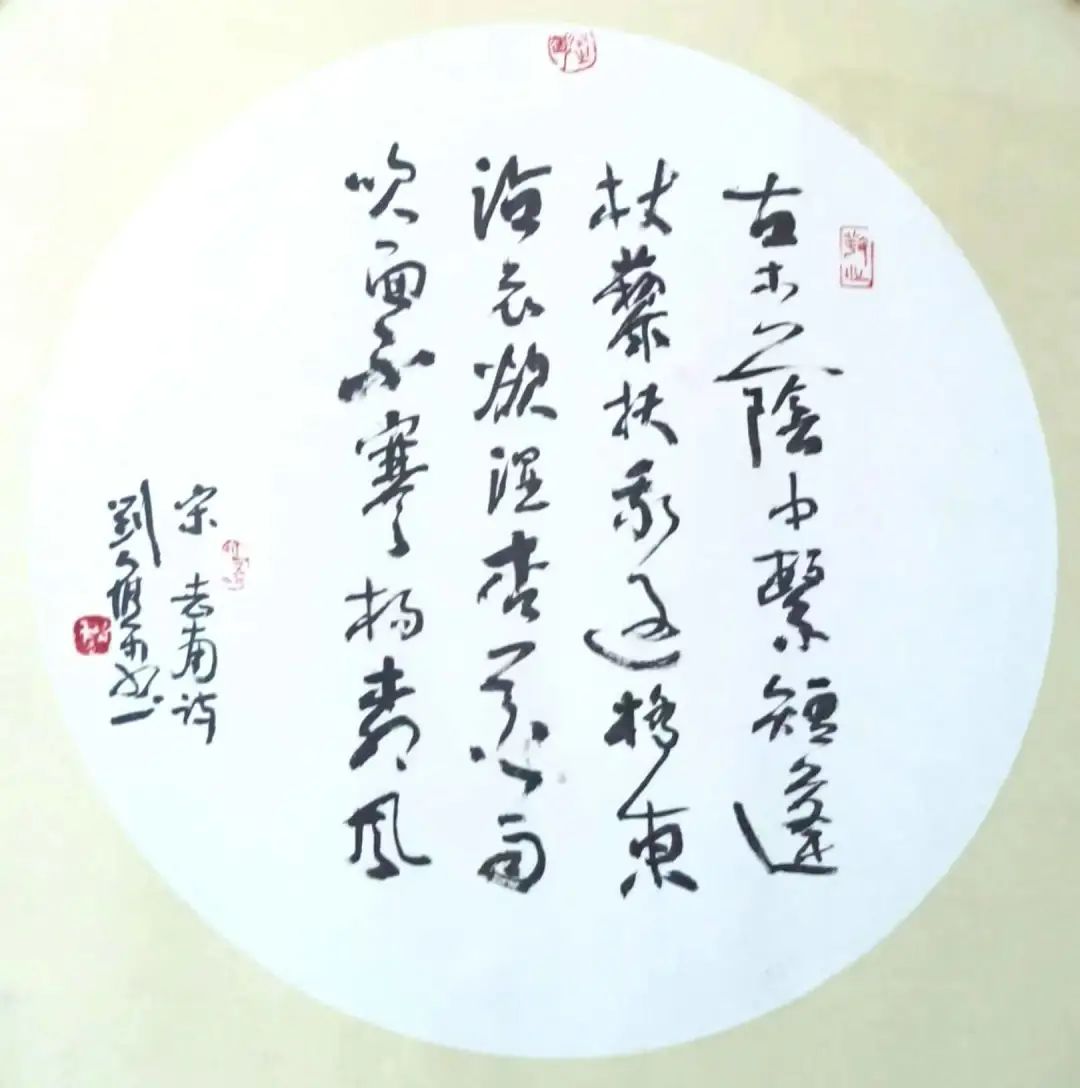 古木之陰中繫短逢
杖藜扶我過橋東
沾衣欲湿杏花雨
吹面不寒楊柳風
宋 志南詩
劉